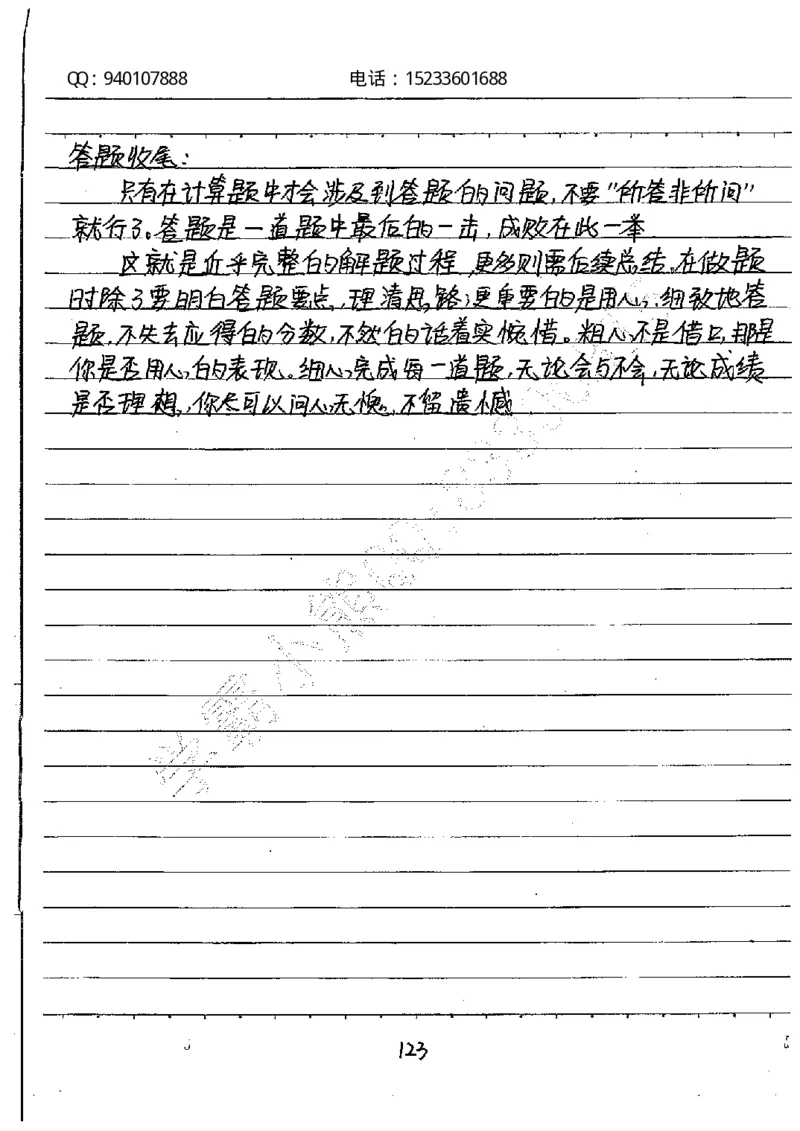 QQ：940107888 电话：15233601688
答题收尾：
只有在计算题中才会涉及到答题的问题，不要“所答非所问”
就行了。答题是一道题中最后的一击，成败在此一举
这就是近乎完整的解题过程，更多则需后续总结。在做题
时除了要明白答题要点，理清思路；更重要的是用心，细致地答
题，不失去应得的分数，不然的话着实惋惜。粗心不是借口，那是
你是否用心的表现。细心完成每一道题，无论会与不会，无论成绩
是否理想，你尽可以问心无愧，不留遗憾
学霸小熊QQ:
123